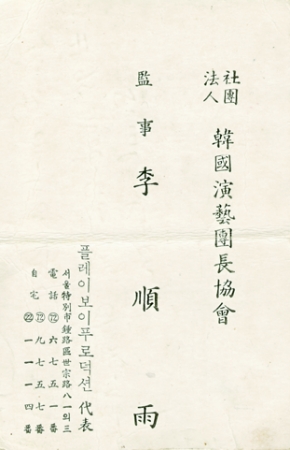 社團
法人
韓國演藝團長協會
監事 李順雨
플레이보이푸로덕션 代表
서울特別市鍾路區世宗路八一의三
電話 ㉒ 六七五一番
㉒ 九七五七番
自宅 ㉒ 一一一四番